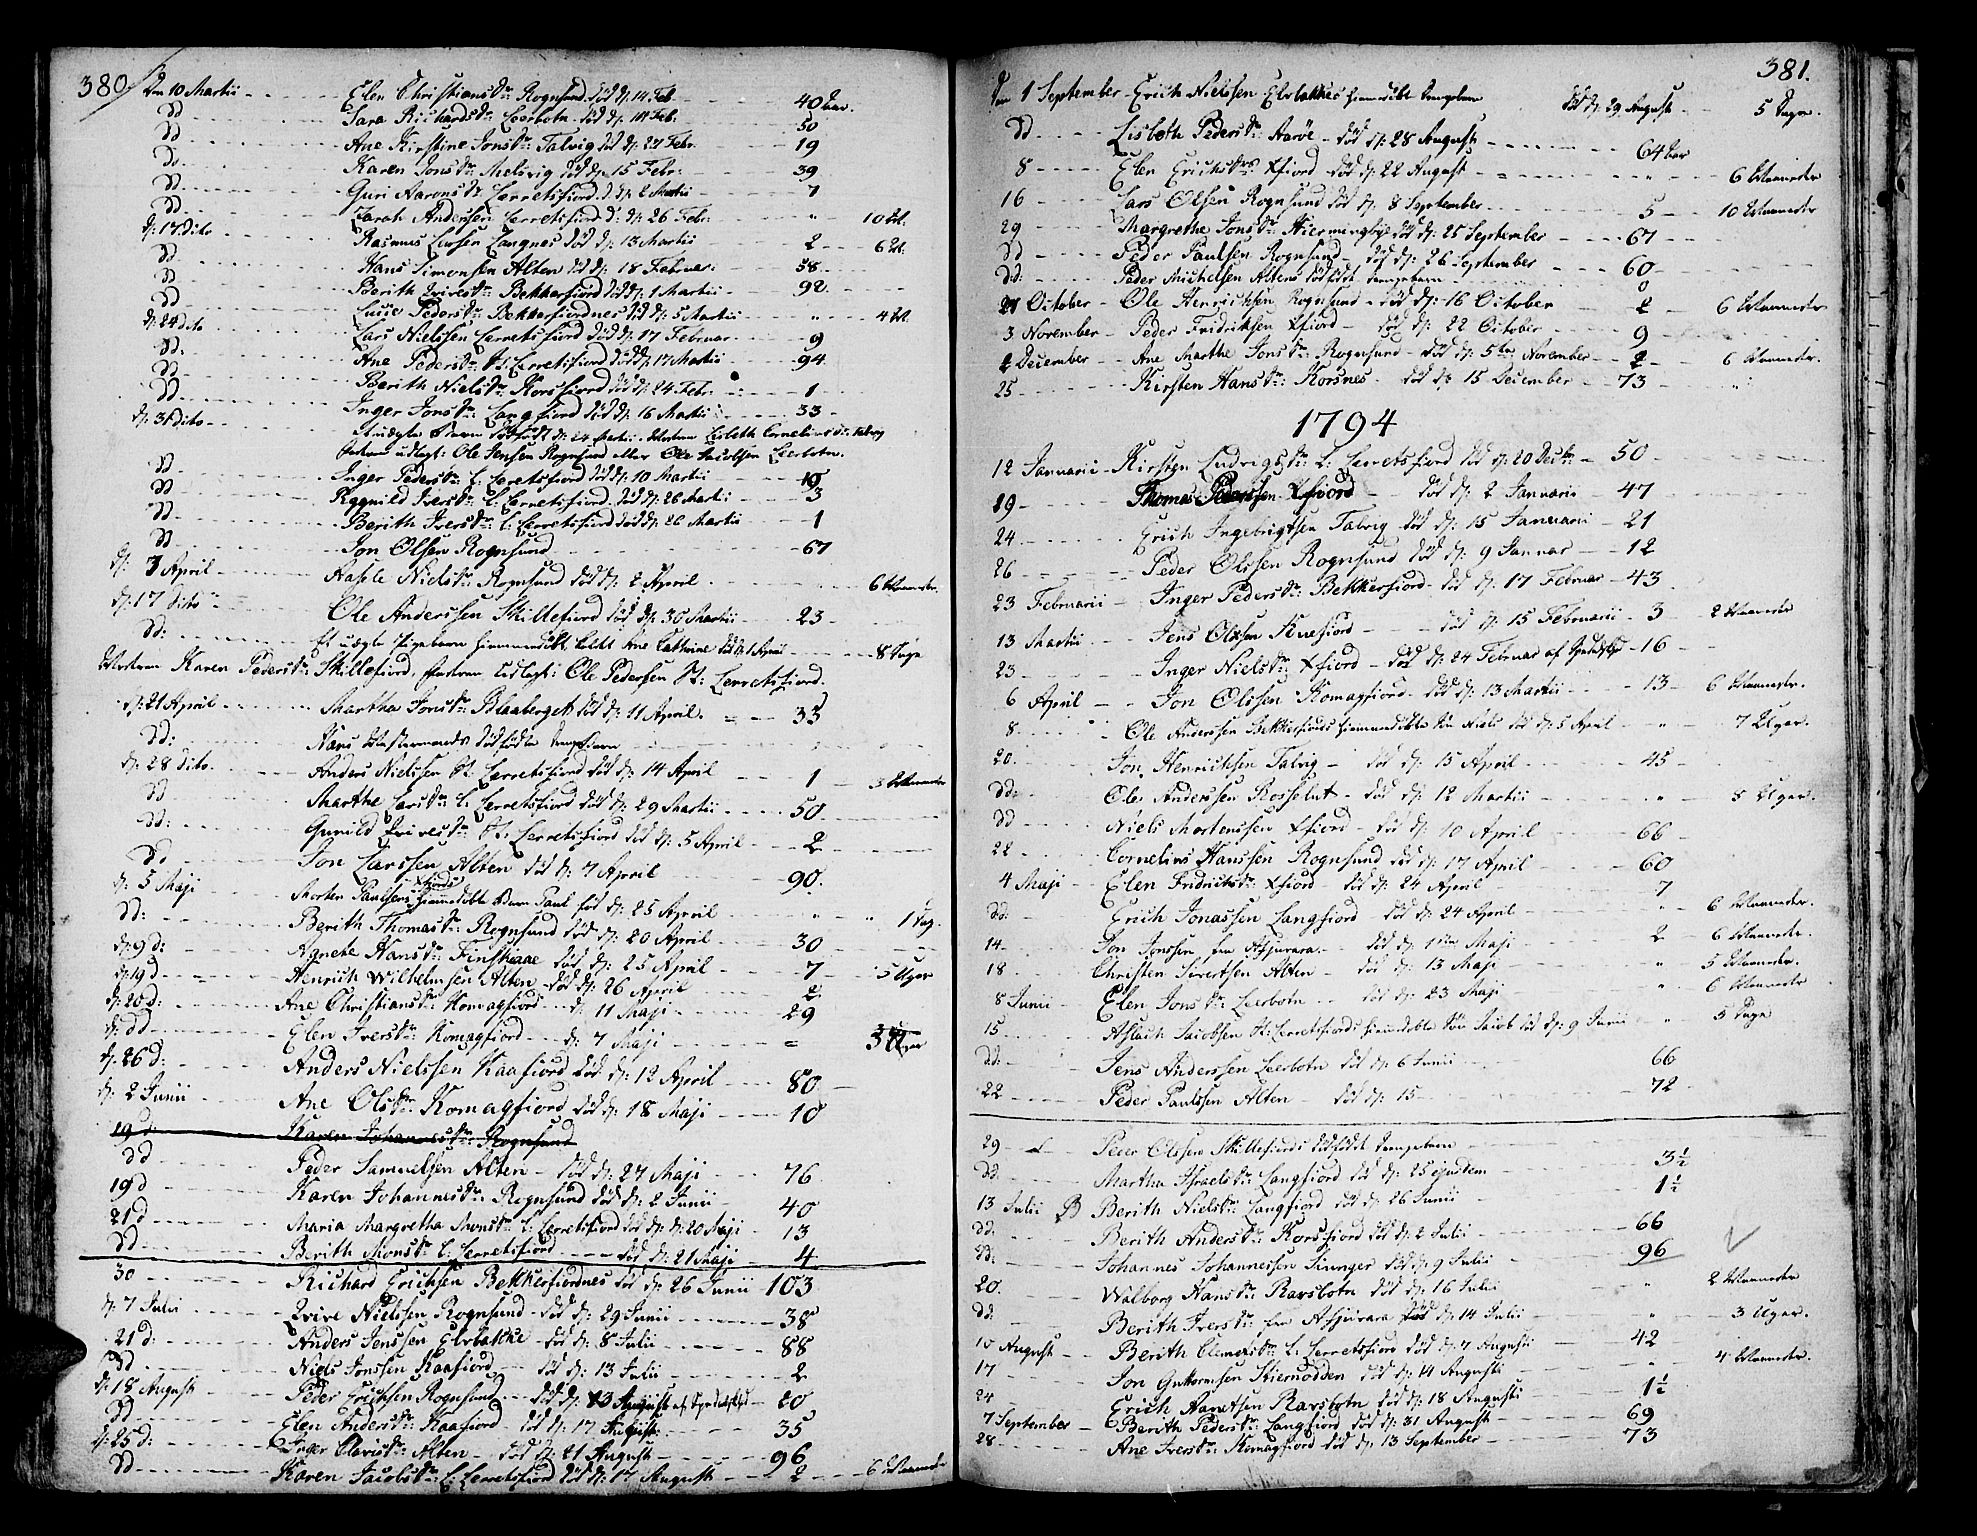 380
Den 10 Martii - Elen Christiansdr: Rognsund død d: 14 Feb. - 40 Aar.
Dd - Sara Richardsdr: Leerbotn død d: Feb. - 50
Dd - Ane Kirstine Jonsdr: Talvig død d: 27 Febr. - 19
Do - Karen Jonsdr: Melsvig død d: 15 Febr: - 39
Dd - Guri Aaronsdr: Lerretsfiord d: d: 2 Martii - 7
Dd - Zarah Anderssen Lerretsfiord d: d: 26 Febr: - " - 10 M.
d: 17 Dito - Rasmus Larsen Langnes død d: 13 Martii - 2 - 6 M.
Dd - Hans Simonsen Alten død d: 18 Februar: - 58
D - Berith Qvivesdr: Bekkerfiord død d: 1 Martii - 92
Dd - Lucie Pedersdr: Bekkerfiordnes død d: 5 Martii - " - 4 M.
d: 24 dito - Lars Nielssen Lerretsfiord død d: 17 Februar - 9
Dd: - Ane Pedersdr: St: Lerretsfiord død d: 17 Martii - 94
Dd - Berith Nielsdr: Korsfiord død d: 24 Febr. - 1
Dd - Inger Jonsdr: Langfiord død d: 16 Martii - 33
d: 31 dito - Et uægte Barn dødfødt d: 24 Martii. Moderen Lisbeth Cornelius dr: Talvig
Faderen udlagt: Ole Jensen Rognsund eller Ole Jacobsen Leerbotn.
Dd - Inger Pedersdr: L: Leretsfiord død d: 10 Martii
Dd - Ragnild Iversdr: L: Lerretsfiord død d: 26 Martii - 3
Dd - Berith Iversdr: L: Lerretsfiord død d: 26 Martii - 1
Dd - Jon Olsen Rognsund - 67
d: 7 April - Aasele Nielsdr: Rognsund død d: 2 April - 6 Maaneder.
d: 17 dito - Ole Anderssen Skillefiord død d: 30 Martii - 23
Dd: - Et uægte Pigebarn hiemmedøbt kaldt Ane Cathrine død d: 1 April - 8 Dage
Moderen Karen Pedersdr: Skillefiord, Faderen Udlagt: Ole Pedersen St: Lerretsfiord.
d: 21 April - Martha Jonsdr: Blaaberget død d: 11 April. - 33
Dd: - Hans Mastermands dødfødte Drengebarn
d: 28 dito. - Anders Nielssen St: Lerretsfiord død d: 14 April - 1 - 3 Maaneder
Dd - Marthe Larsdr: L: Lerretsfiord død d: 29 Martii - 50
Dd: - Gunild Qvivesdr: St: Lerretsfiord død d: 5 April - 2
Dd - Jon Larssen Alten død d: 7 April - 90.
d: 5 Maji - Morten Paulsens Xfiords hiemmedøbte Barn Paul død d: 25 April - " - " 1 Dag.
Dd: - Berith Thomasdr: Rognsund død d: 20 April - 30
d: 9 d: - Agnete Hansdr: Finskiaae død d: 25 April - 7
d: 19 d - Henrich Wilhelmsen Alten død d: 26 April - 2 - 5 Uger
d: 20 d: - Ane Christiansdr: Komagfiord d: 11 Maji - 29
d: dd: - Elen Iversdr: Komagfiord d: 7 Maji - = - 3 Uger
d: 26 d: - Anders Nielssen Kaafiord død d: 12 April - 80
d: 2 Junii - Ane Olsdr: Komagfiord død d: 18 Maji - 10
19 d: - Karen Johannesdr: Rognsund
dd - Peder Samuelsen Alten - død d: 27 Maji - 76
19 d - Karen Johannesdr: Rognsund død d: 2 Junii - 40
21 d - Maria Margretha Monsdr: L: Lerretsfiord død d: 20 Maji - 13
Dd - Berith Monsdr: L: Lerretsfiord - død d: 21 Maji - 4
30 - Richard Erichsen Bekkerfiordnes død d: 26 Junii - 103
d: 7 Julii - Qvive Nielssen Rognsund - død d: 29 Junii - 38
21 d: - Anders Jenssen Elvbakke - død d: 8 Julii - 88
Dd - Niels Jonssen Kaafiord - død d: 13 Julii - 2
d: 18 August - Peder Erichsen Rognsund - død d: 13 August - 20
Dd - Elen Andersdr: Kaafiord - død d: 17 August - 35
d: 25 d: - Inger Clavisdr: Alten - død d: 21 August - 96
Dd - Karen Jacobsdr: L: Lerretsfiord død d: 17 August - 2 - 6 Maaneder
381.
Den 1 September - Erich Nielssen Elvbakkes hiemmedøbte Drengebarn død d: 29 August - 5 Dage
Dd - Lisbeth Pedersdr: Aarøe - død d: 28 August - 64 Aar
8 - Elen Erichsdr: Xfiord død d: 22 August - " - 6 Maaneder
16 - Lars Olsen Rognsund død d: 8 September - 5 - 10 Maaneder
29 - Margrethe Jonsdr: død d: 25 September - 67
Dd - Peder Paulsen Rognsund - død d: 26 September - 60
Dd: - Peder Michelsen Alten dødfødt Drengebarn - 0
21 October - Ole Henrichsen Rognsund - død d: 16 October - 2 - 6 Maaneder
3 November - Peder Fridriksen Xfiord - død d: 22 October - 9
2 December - Ane Marthe Jonsdr: Rognsund - død d: 5te November - 2 - 6 Maaneder.
25 - Kirsten Hansdr: Korsnes - død d: 15 December - 73
1794
12 Januarii - Kirsten Ludvigsdr: L: Lerretsfiord død d: 20 Decbr: - 50
19 - Thomas Pedersen Xfiord - død d: 2 Januarii - 47
24 - Erich Ingebrigtsen Talvig død d: 15 Januarii - 21
26 - Peder Olssen Rognsund død d: 9 Januar - 12
23 Februarii - Inger Pedersdr: Bekkerfiord død d: 17 Februar - 43
13 Martii - Jens Olssen Kuefiord - død d: 15 Februarii - 3 - 2 Maaneder
23 - Inger Nielsdr: Xfiord - død d: 24 Februar af - 16
6 April - Jon Olssen Komagfiord - død d: 13 Martii - 13 - 6 Maaneder.
8 - Ole Anderssen Bekkerfiords hiemmedøbte Søn Niels død d: 5 April - " - 7 Uger.
20. - Jon Henrichsen Talvig - død d: 15 April - 45
Dd: - Ole Anderssen Rosselut - død d: 12 Martii - " - 5 Uger.
Dd - Niels Mortenssen Xfiord - død d: 10 April - 66
22 - Cornelius Hanssen Rognsund død d: 17 April - 60
4 Maji - Elen Fridrichsdr: Xfiord - død d: 24 April - 7
Dd: - Erich Jonassen Langfiord - død d: 24 April - " - 6 Maaneder.
14 - Jon Jonssen fra Afjuvara - død d: 1ste Maji - 2 - 6 Maaneder.
18 - Christen Sivertsen Alten - død d: 13 Maji - " - 5 Maaneder.
8 Junii - Elen Jonsdr: Leerbotn - død d: 23 Maji - " - 6 Maaneder
15 - Aslach Jacobsen St: Lerretsfiords hiemdøbte Søn Jacob død d: 9 Junii - " - 5 Dage
Dd: - Jens Anderssen Leerbotn død d: 6 Junii - 66
22 - Peder Paulssen Alten død d: 15 - 72
29 - Peder Olssen Skillefiords dødfødt Drengebarn
Dd: - Martha Israelsdr: Langfiord død d: 25 ejusdem - 3½
13 Julii B Berith Nielsdr: Langfiord død d: 26 Junii - 1½
Dd: - Berith Andersdr: Korsfiord død d: 2 Julii - 66
Dd: - Johannes Johannessen død d: 9 Julii - 96
20. - Walborg Hansdr: Ravsbotn død d: 16 Julii - " - 2 Maaneder
Dd - Berith Iversdr: fra Afjuvara død d: 14 Julii - " - 3 Uger.
10 August - Berith Clemetsdr: L: Lerretsfiord død d: 7 Augusti - 42
17 - Jon Guttormsen Kiernodden død d: 11 Augusti - " - 4 Maaneder.
24 - Erich Hansen Ravsbotn død d: 18 Augusti - 1½
7 September - Berith Pedersdr: Langfiord død d: 31 August - 69
28 - Ane Iversdr: Komagfiord død d: 13 September - 73